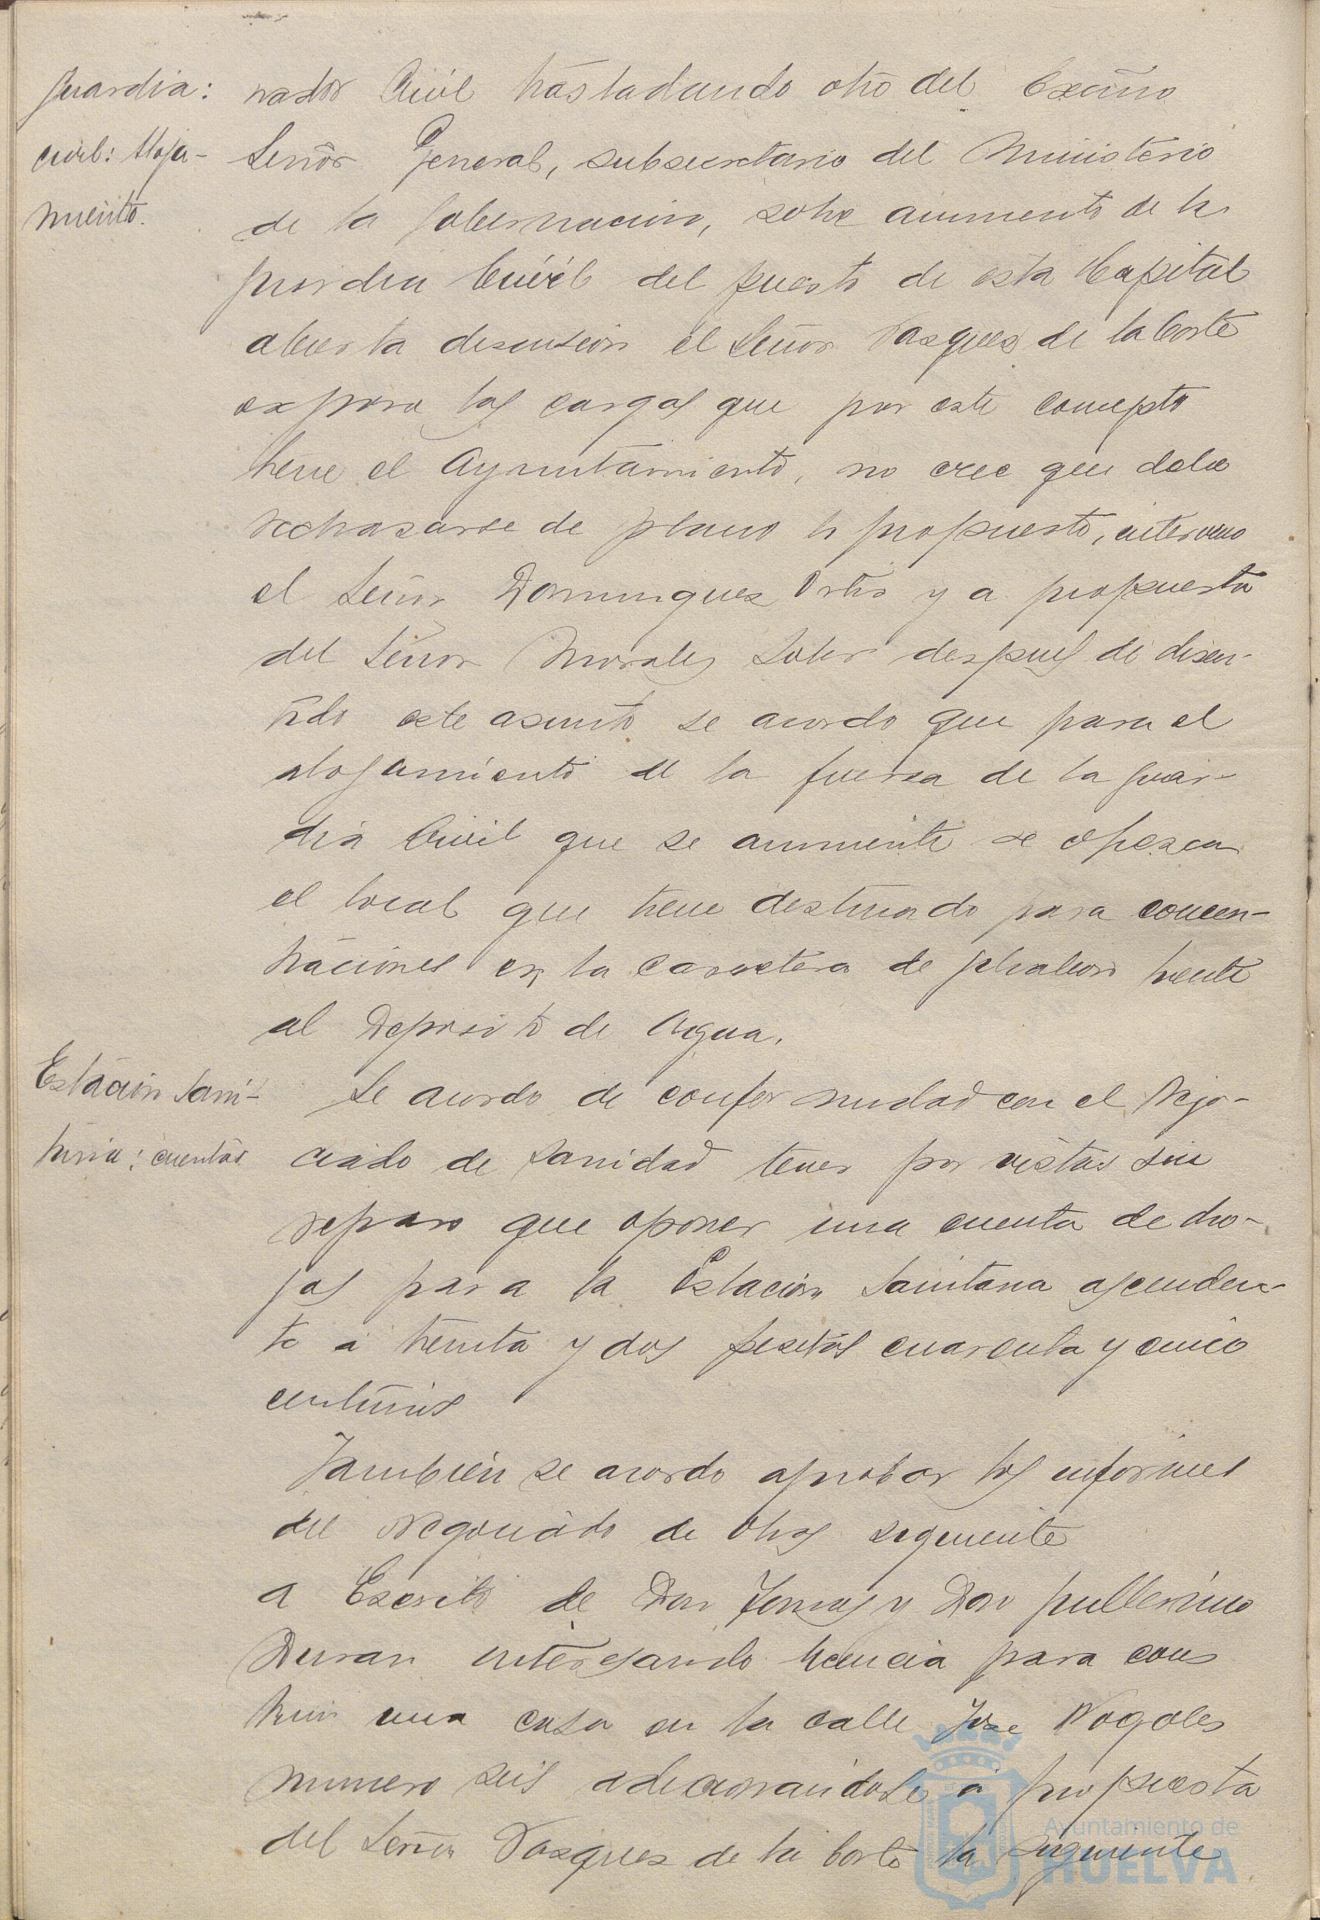 Guardia:
civil: Aloja-
miento.
nador Civil trasladando otro del Excmo
Señor General, subsecretario del Ministerio
de la Gobernacion, sobre aumento de la
Guardia Civil del puesto de esta Capital
abierta discusion el Señor Vasquez de la Corte
expone las cargas que por este concepto
tiene el Ayuntamiento, no cree que debe
rechazarse de plano lo propuesto, interviene
el Señor Dominguez Ortiz y a propuesta
del Señor Morales Soler despues de discu-
tido este asunto se acordo que para el
alojamiento de la fuerza de la Guar-
dia Civil que se aumente se ofrezca
el local que tiene destinado para concen-
traciones en la carretera de Gibraleon frente
al Deposito de Agua.
Estación Sani-
taria: cuentas
Se acordo de conformidad con el Nego-
ciado de Sanidad tener por vistas sin
reparo que oponer una cuenta de dro-
gas para la Estación Sanitaria ascenden-
te a treinta y dos pesetas cuarenta y cinco
centimos
Tambien se acordo aprobar los informes
del Negociado de Obras seguiente
a Escrito de Don Tomas y Don Guillermo
Duran interesando licencia para cons
truir una casa en la calle Jose Nogales
numero seis adicionandose a propuesta
del Señor Vasquez de la Corte la seguiente
Ayuntamiento de
HUELVA